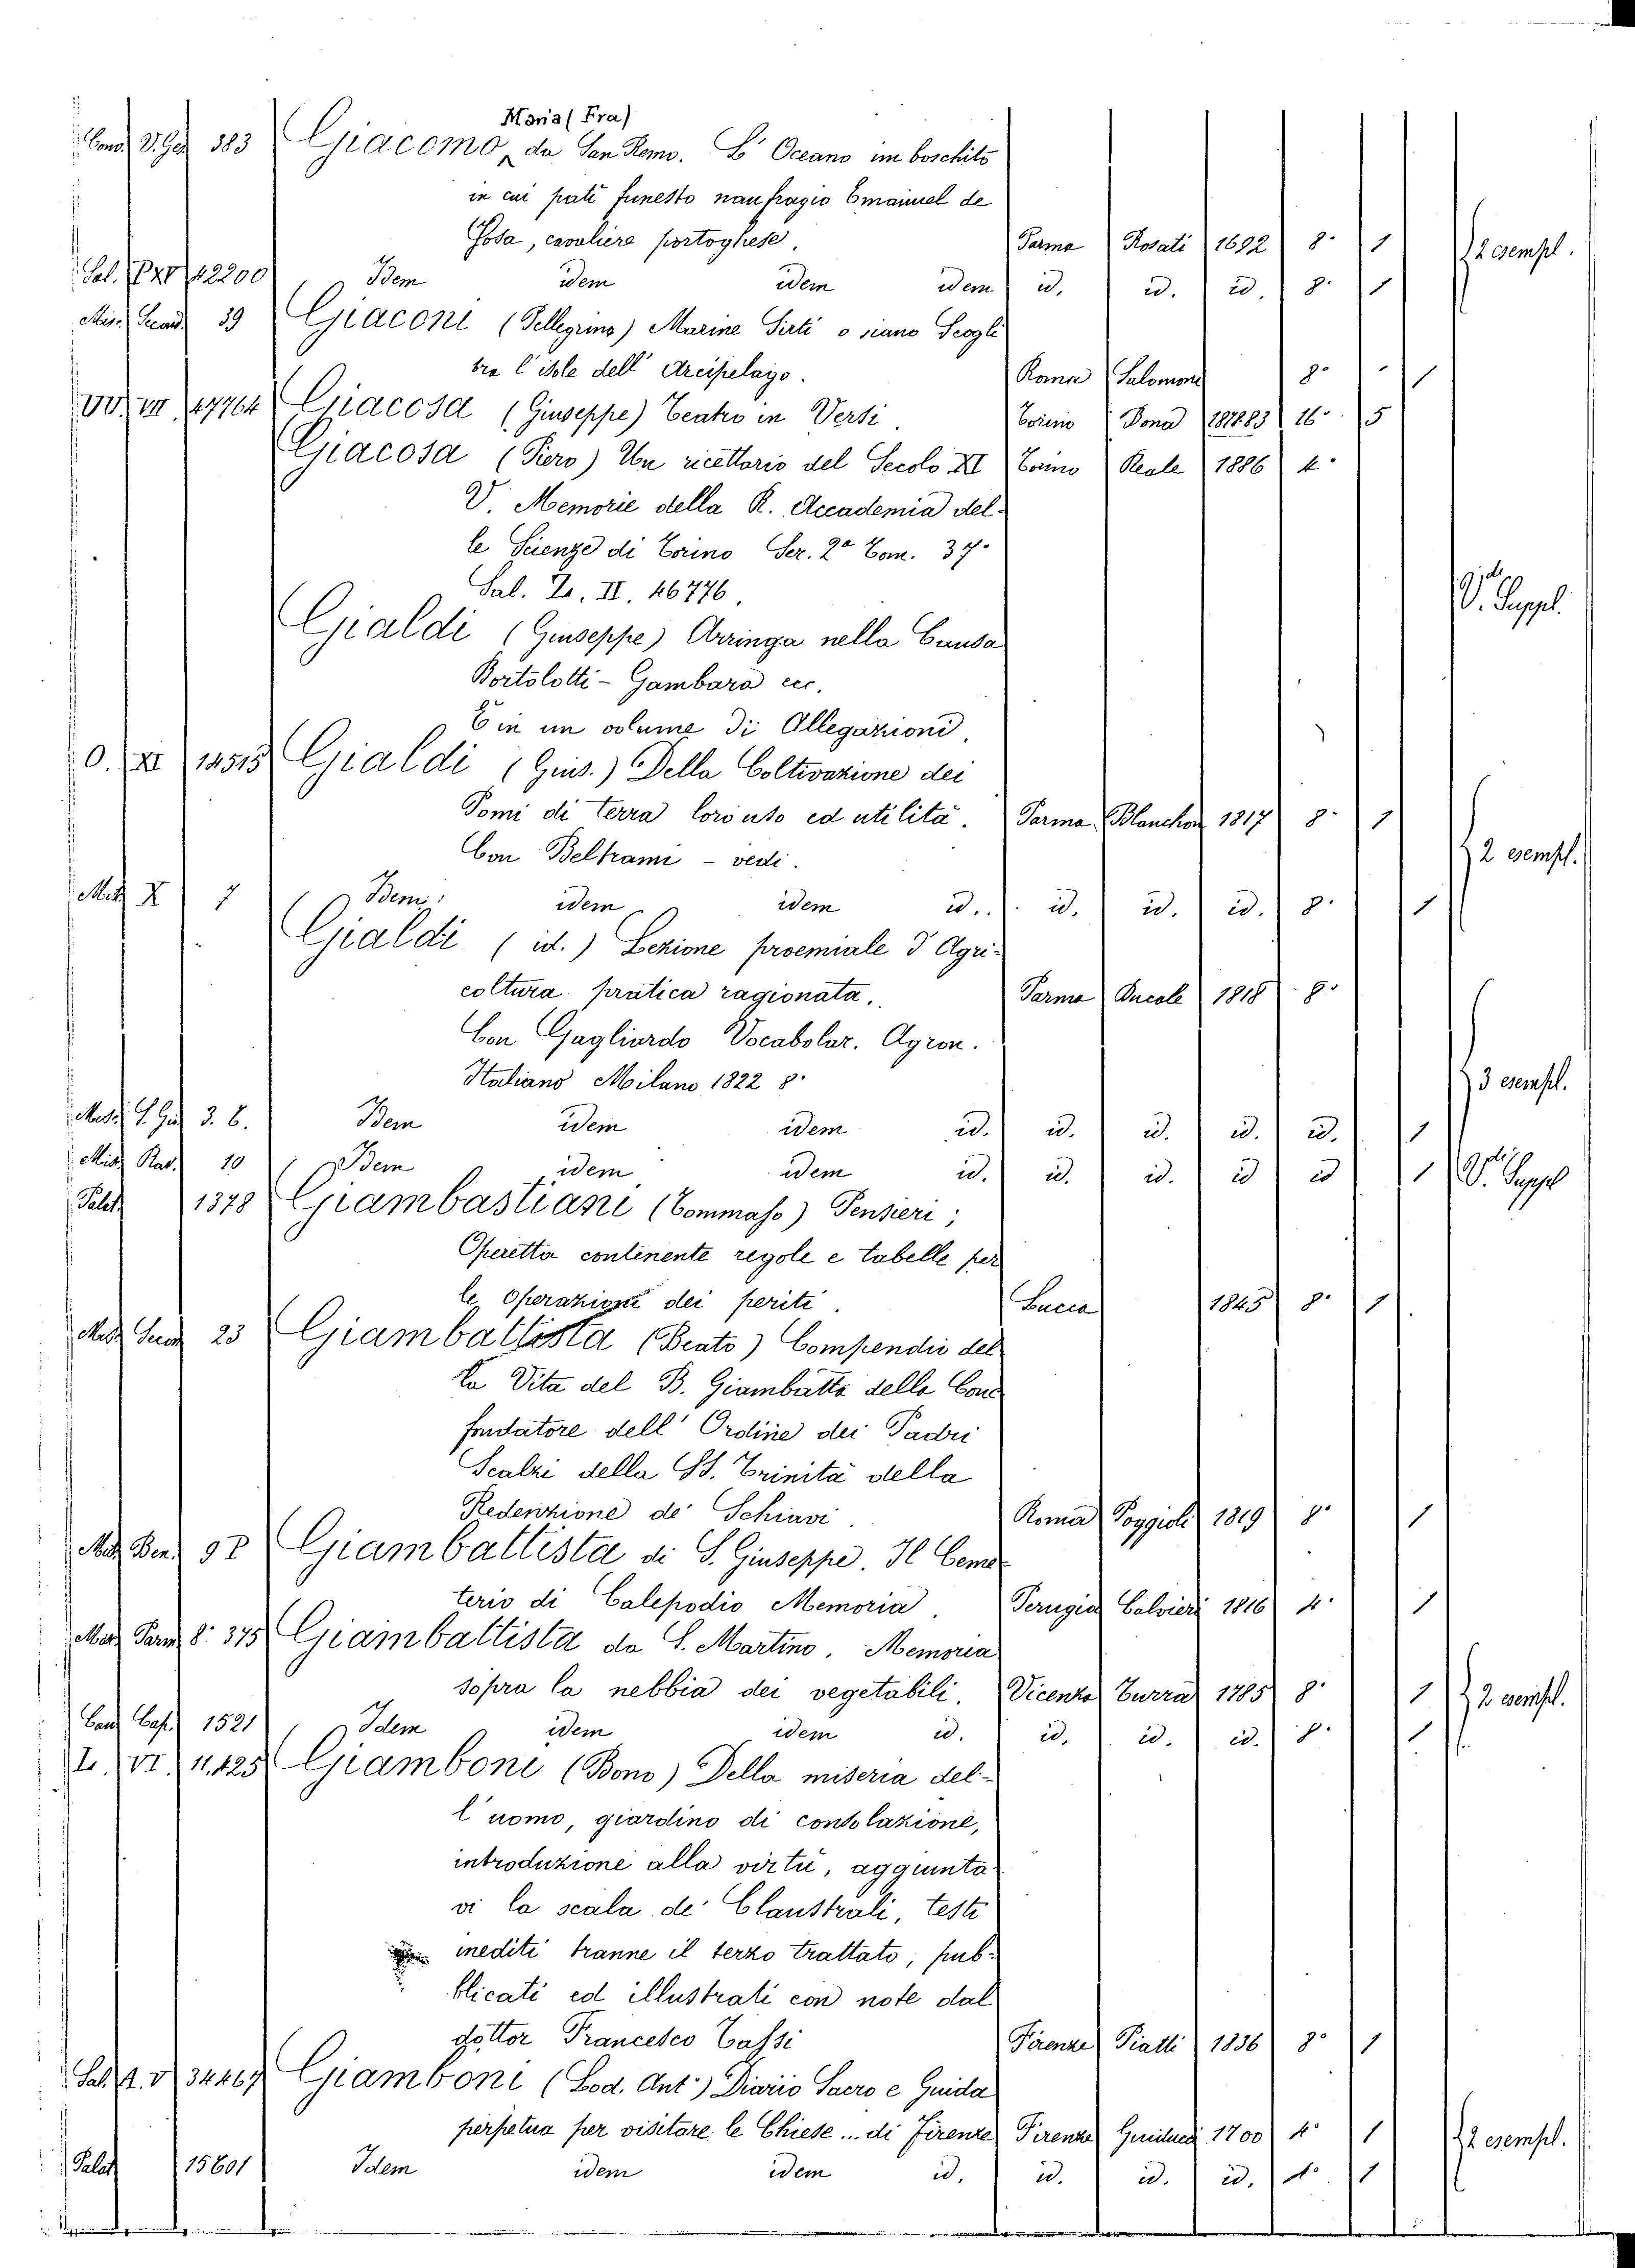 Maria (Fra)
383 Giacomo da San Remo. L'Oceano im boschito
in cui pati funesto naufragio Emanuel de
Sosa, cavaliere portoghese. Parma Rosati 1692 8° 1 2 esempl.
Sal. 42200 Idem idem idem idem id. id. id. 8° 1
39 Giaconi (Pellegrino) Marine Sirti o siano Scogli
tra l'isole dell'Arcipelago. Roma Salomoni 8° 1
VV. VII 47764 Giacosa (Giuseppe) Teatro in Versi. Torino Bona 16° 5
Giacosa (Piero) Un ricettario del Secolo XI Torino Reale 1886 4°
V. Memorie della R. Accademia del-
le Scienze di Torino Ser. 2ª Tom. 37°
Sal. Z. II. 46776. V. Suppl.
Gialdi (Giuseppe) Arringa nella Causa
Bortolotti-Gambara ecc.
E in un volume di Allegazioni.
O. XI 14515 Gialdi (Gius.) Della Coltivazione dei
Pomi di terra loro uso ed utilità. Parma Blanchon 1817 8° 1
Con Beltrami - vedi. 2 esempl.
X 7 Idem idem idem id. id. id. id. 8° 1
Gialdi (id.) Lezione proemiale d'Agri-
coltura pratica ragionata. Parma Ducale 1818 8°
Con Gagliardo Vocabolar. Agron.
Italiano Milano 1822 8° 3 esempl.
3. 6. Idem idem idem id. id. id. id. id. 1
10 Idem idem idem id. id. id. id id 1 V. Suppl
Palat 1378 Giambastiani (Tommaso) Pensieri;
Operetta continente regole e tabelle per
le operazioni dei periti. Lucca 1845 8° 1
23 Giambattista (Beato) Compendio del
la Vita del B. Giambatta della Conc
fondatore dell'Ordine dei Padri
Scalzi della SS. Trinità della
Redenzione de' Schiavi. Roma Poggioli 1819 8° 1
97 Giambattista di S. Giuseppe. Il Ceme-
terio di Calepodio Memoria. Perugia Calvieri 1816 4° 1
8° 375 Giambattista da S. Martino. Memoria
sopra la nebbia dei vegetabili. Vicenza Turra 1785 8° 1 2 esempl.
1521 Idem idem idem id. id. id. id. 8° 1
L. VI 11,425 Giamboni (Bono) Della miseria del-
l'uomo, giardino di consolazione,
introduzione alla virtù, aggiunta
vi la scala de' Claustrali, testi
inediti tranne il terzo trattato, pub-
blicati ed illustrati con note dal
dottor Francesco Tassi Firenze Piatti 1836 8° 1
34467 Giamboni (Lod. Ant°) Diario Sacro e Guida
perpetua per visitare le Chiese... di Firenze Firenze Guiducci 1700 4° 1 2 esempl.
Palat 15601 Idem idem idem id. id. id. id. 4° 1